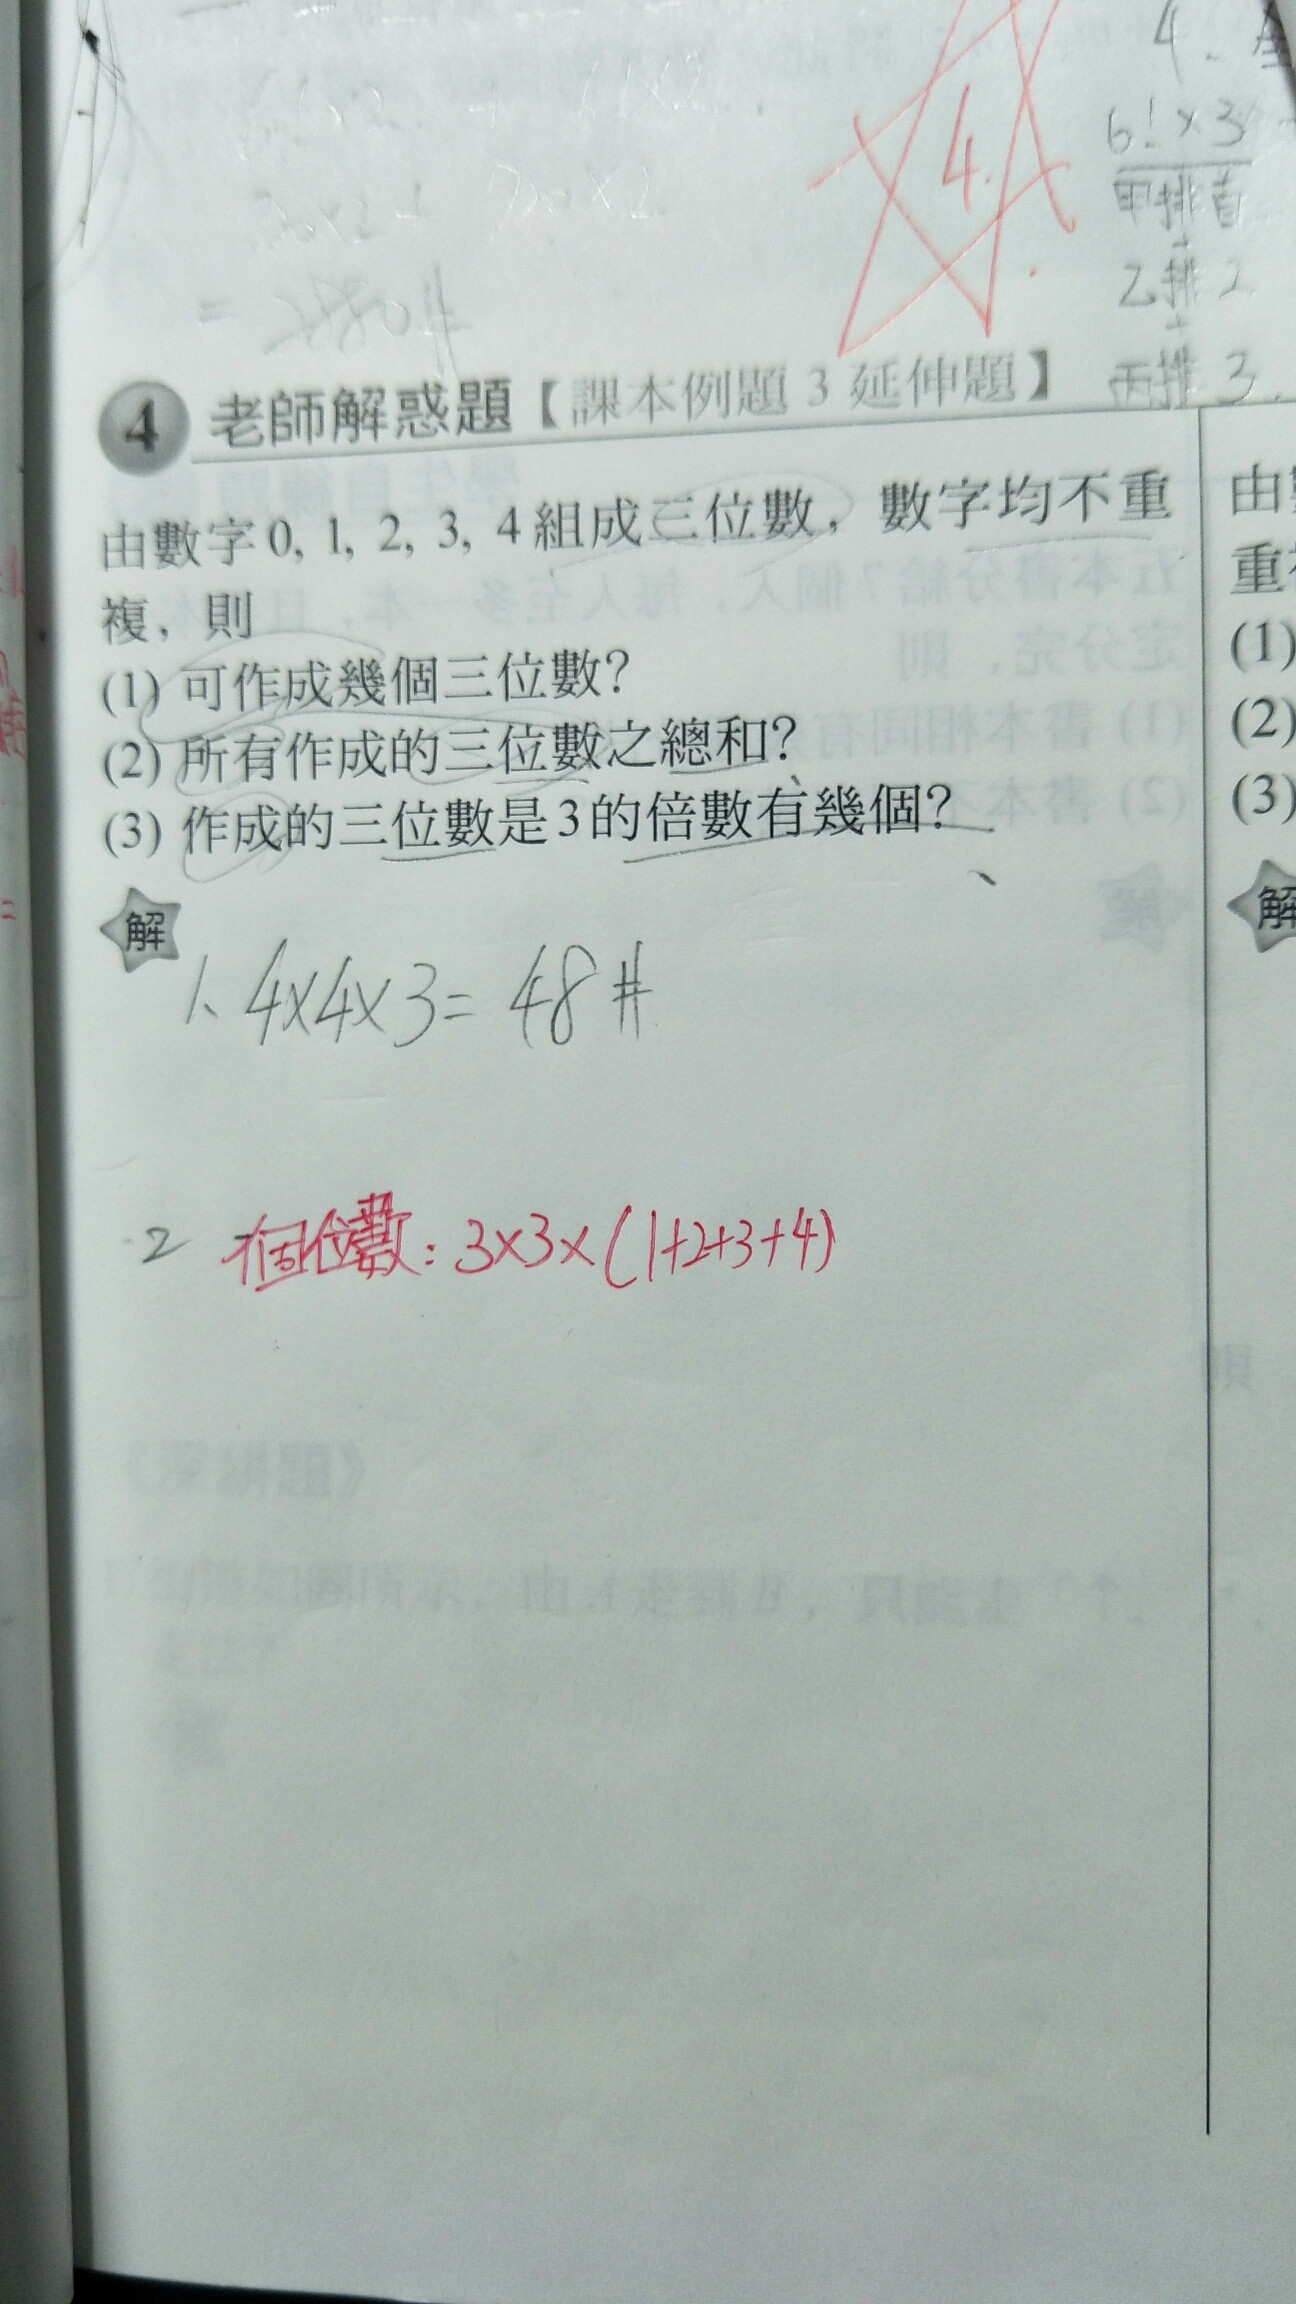 4、
6!×3
甲排首
乙排2
丙排3.
4.
4 老師解惑題【課本例題3延伸題】
由數字0, 1, 2, 3, 4組成三位數，數字均不重
複，則
(1) 可作成幾個三位數？
(2) 所有作成的三位數之總和？
(3) 作成的三位數是3的倍數有幾個？
解
1、4×4×3=48#
2 個位數：3×3×(1+2+3+4)
由
重
(1)
(2)
(3)
解